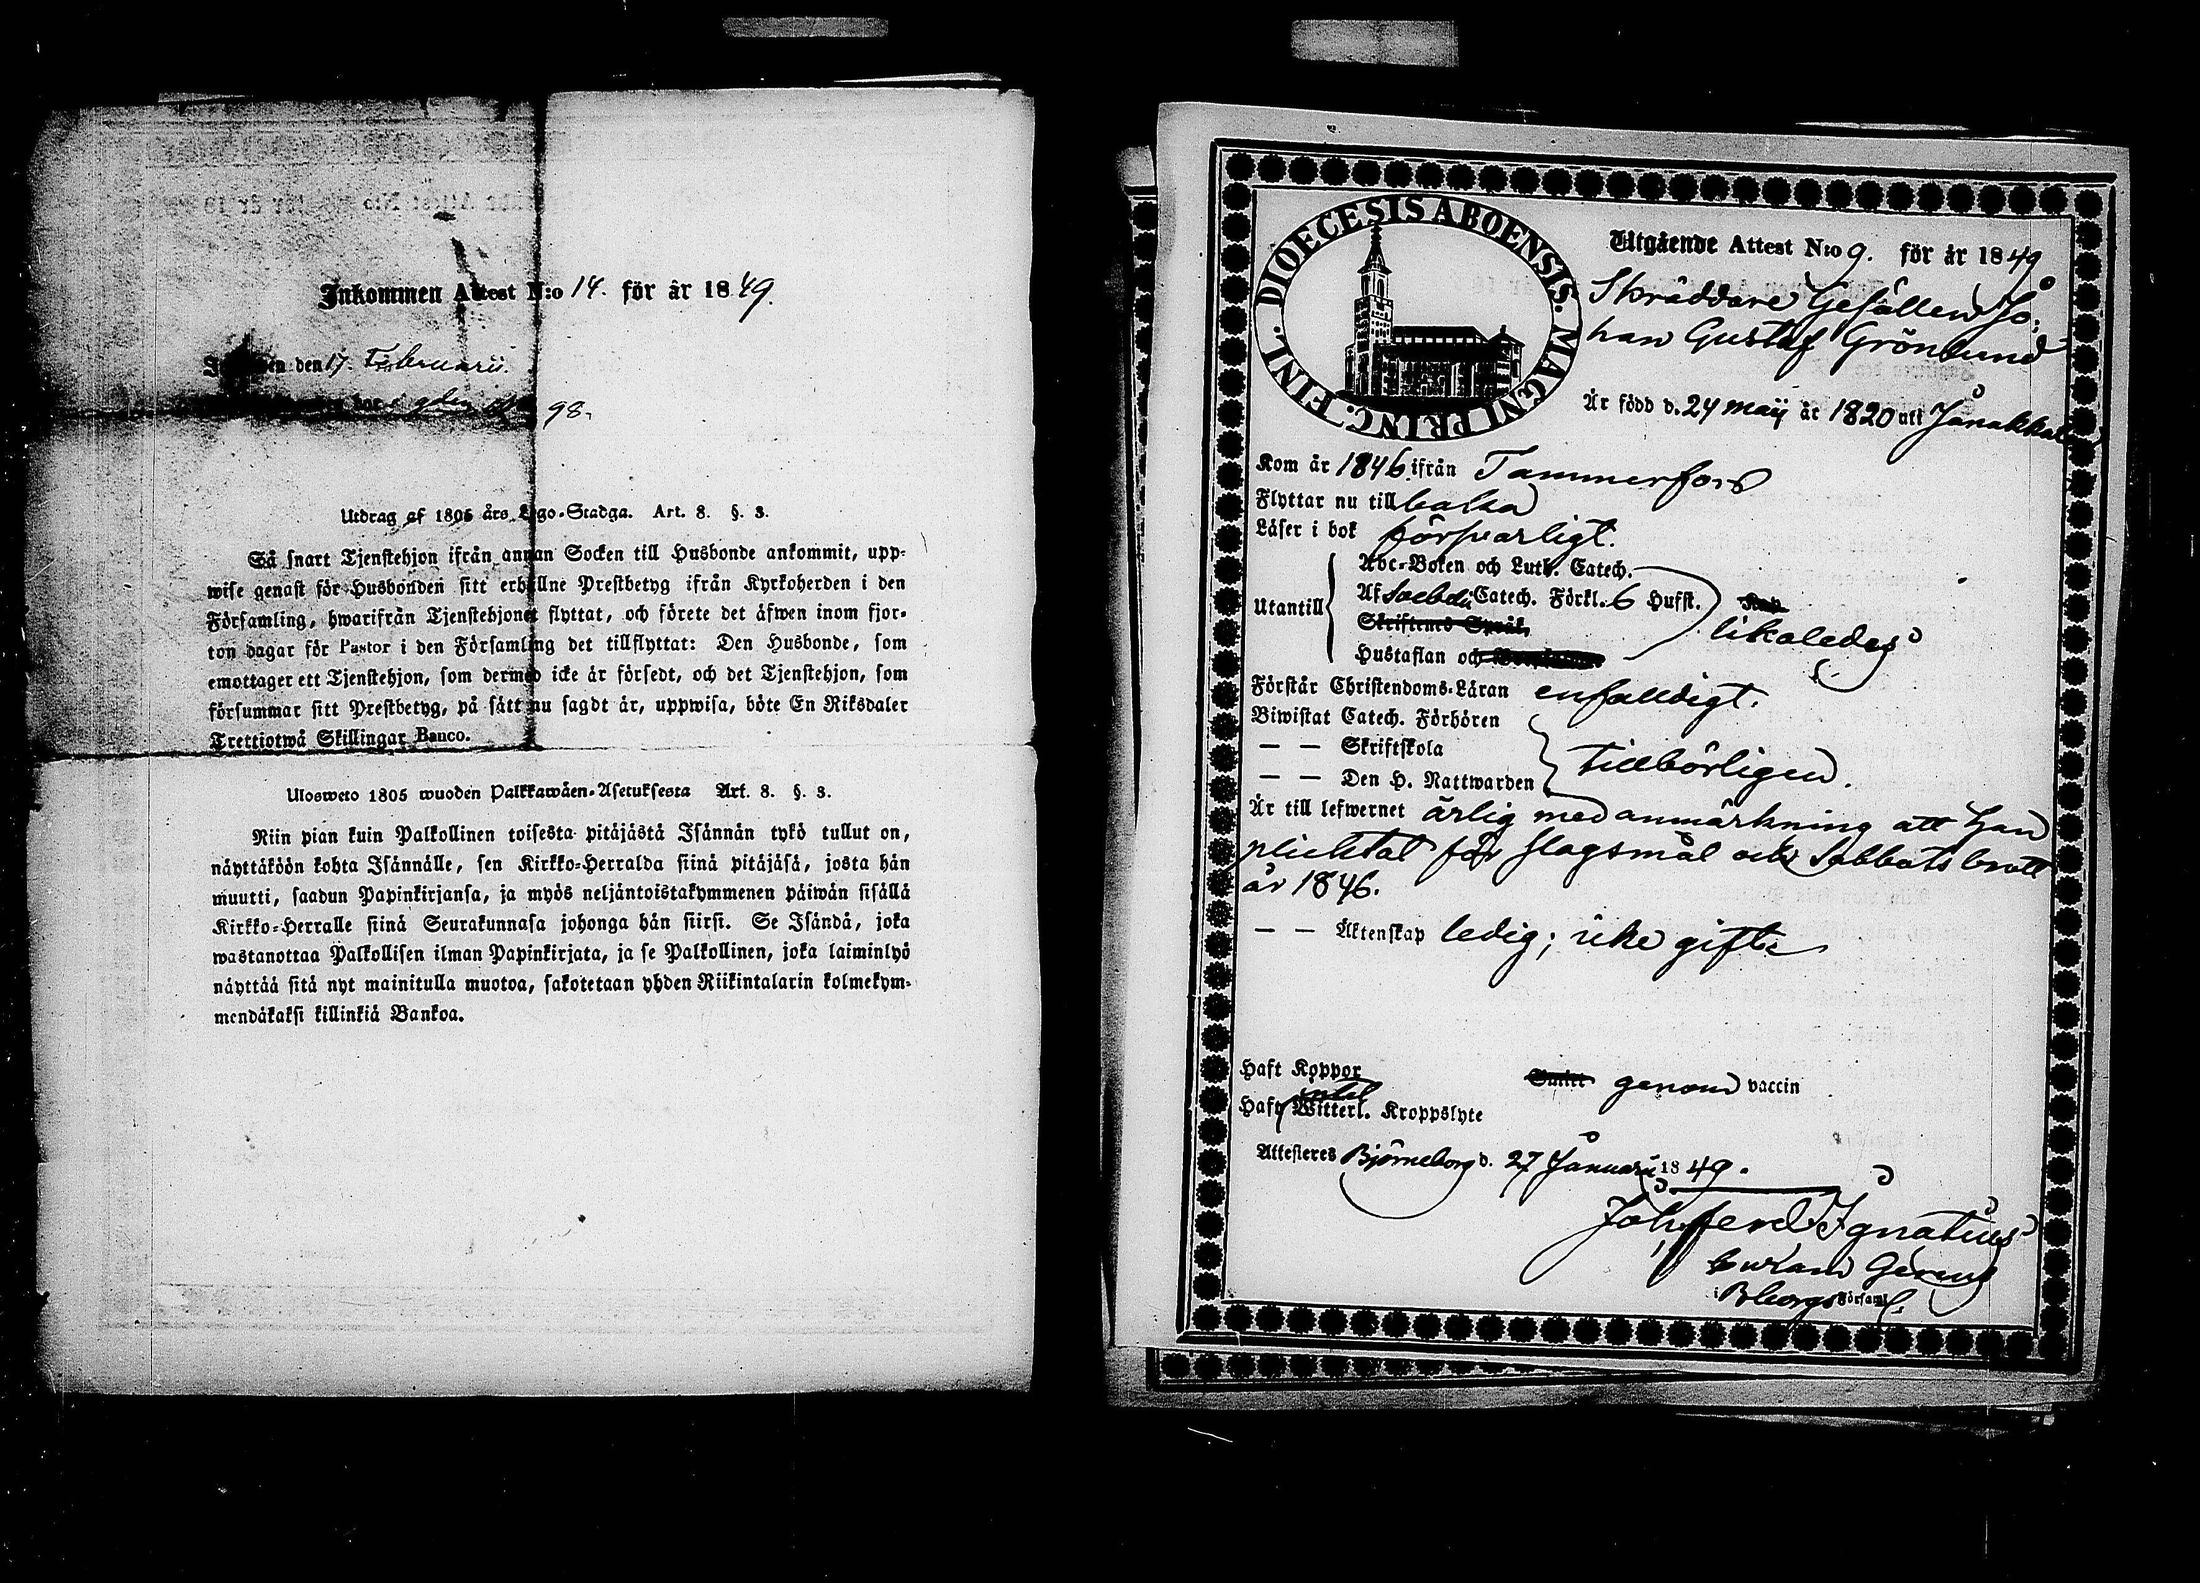 Inkommen Attest N:o 14. för år 1849.
den 17. Februarii.
98.
Utdrag af 1805 års Lego-Stadga. Art. 8. §. 3.
Så snart Tjenstehjon ifrån annan Socken till Husbonde ankommit, upp-
wise genast för Husbonden sitt erhållne Prestbetyg ifrån Kyrkoherden i den
Församling, hwarifrån Tjenstehjonet flyttat, och förete det äfwen inom fjor-
ton dagar för Pastor i den Församling det tillflyttat: Den Husbonde, som
emottager ett Tjenstehjon, som dermed icke är försedt, och det Tjenstehjon, som
försummar sitt Prestbetyg, på sätt nu sagdt är, uppwisa, böte En Riksdaler
Trettiotwå Skillingar Banco.
Ulosweto 1805 wuoden Palkkawäen-Asetuksesta Art. 8. §. 3.
Niin pian kuin Palkollinen toisesta pitäjästä Isännän tykö tullut on,
näyttäköön kohta Isännälle, sen Kirkko-Herralda siinä pitäjäsä, josta hän
muutti, saadun Papinkirjansa, ja myös neljäntoistakymmenen päiwän sisällä
Kirkko-Herralle siinä Seurakunnasa johonga hän siirsi. Se Isändä, joka
wastanottaa Palkollisen ilman Papinkirjata, ja se Palkollinen, joka laiminlyö
näyttää sitä nyt mainitulla muotoa, sakotetaan yhden Riikintalarin kolmekym-
mendäkaksi killinkiä Bankoa.
FINL. DIOECESIS ABOENSIS. MAGNI PRINC.
Utgående Attest N:o 9. för år 1849
Skräddare Gesällen Jo-
han Gustaf Grönlund
Är född d. 24 maij år 1820 uti Janakkala
Kom år 1846 ifrån Tammerfors
Flyttar nu tillbaka
Läser i bok försvarligt.
Abc-Boken och Luth. Catech.
Utantill Af Swebelii Catech. Förkl. 6 Hufst.
likaledes
Skriftenes Språk,
Hustaflan och
Förstår Christendoms-Läran enfalldigt.
Biwistat Catech. Förhören
— — Skriftskola
tillbörligen.
— — Den H. Nattwarden
Är till lefwernet ärlig med anmärkning att han
plicktat för slagsmål och Sabbatsbrott
år 1846.
— — Äktenskap ledig; icke gift
Haft Koppor genom vaccin
intet
Haft Witterl. Kroppslyte
Attesteres Björneborg d. 27 Januarii 1849.
Joh. Ferd. Ignatius
curam Gerens
i Bborgs Församl.